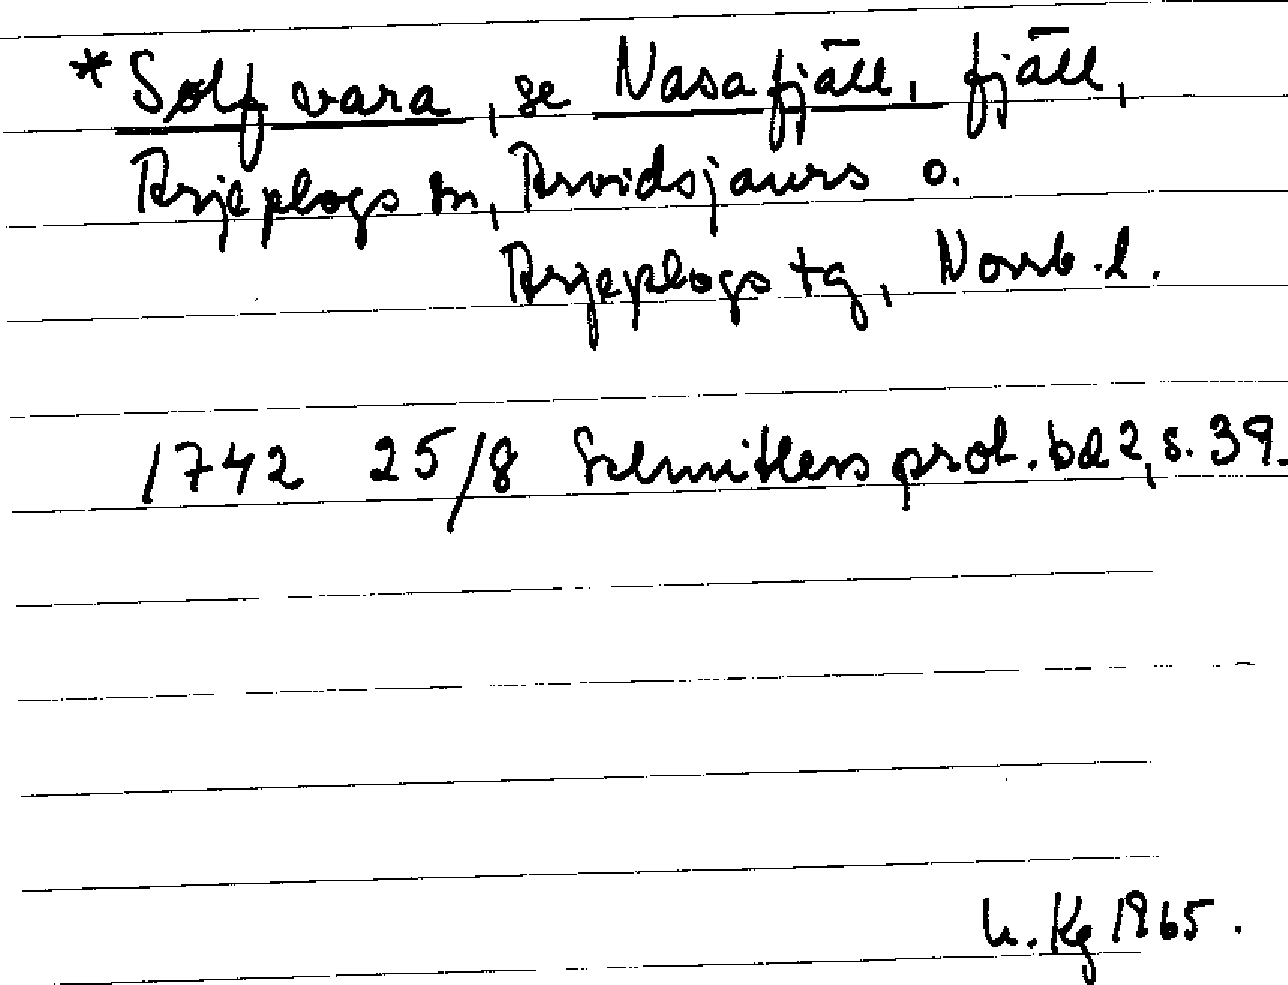 *Sølf vara, se Nasafjäll, fjäll,
Arjeplogs sn, Arvidsjaurs o.
Arjeplogs tg, Norrb.l.
1742 25/8 Schnitlers prot. bd 2, s. 39.
U. Kg 1965.